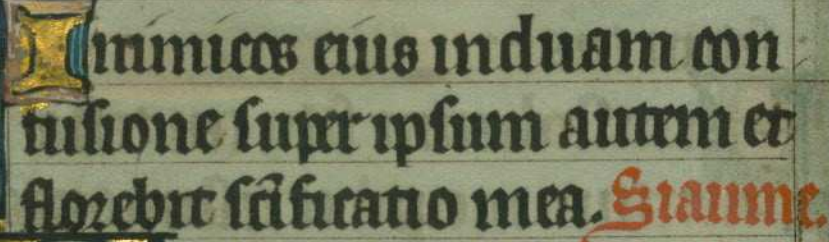 Inimicos eius induam con
fusione super ipsum autem ef
florebit sc̄ificatio mea. Sicut inc.